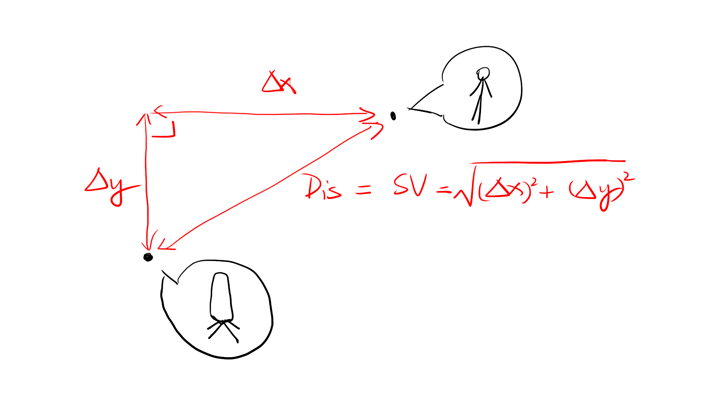 Δx
Δy
Dis = SV = √(Δx)² + (Δy)²